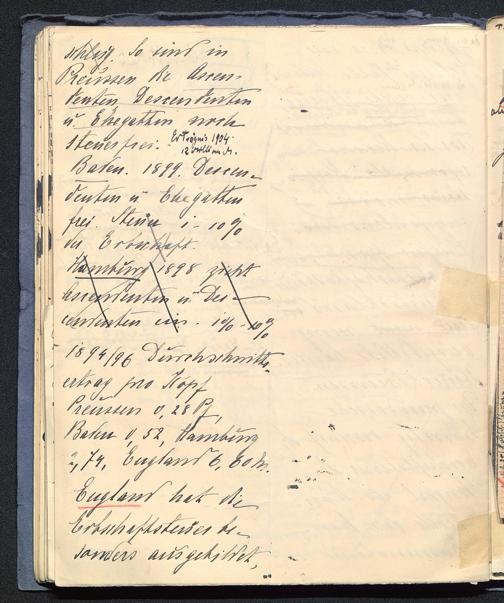 So sind in
Preussen die Ascen-
denten, Descendenten
u Ehegatten noch
steuerfrei. Erträgnis 1904
12 Million M.
Baden. 1899. Descen-
denten u Ehegatten
frei. Steuer 1 - 10%
der Erbschaft.
Hamburg 1898 zieht
Ascendenten u Des-
cendenten ein. 1% - 10%
1894/96 Durchschnitts-
ertrag pro Kopf
Preussen 0,28 Pf,
Baden 0,52, Hamburg
2,74, England 6,60 M.
England hat die
Erbschaftssteuer be-
sonders ausgebildet,